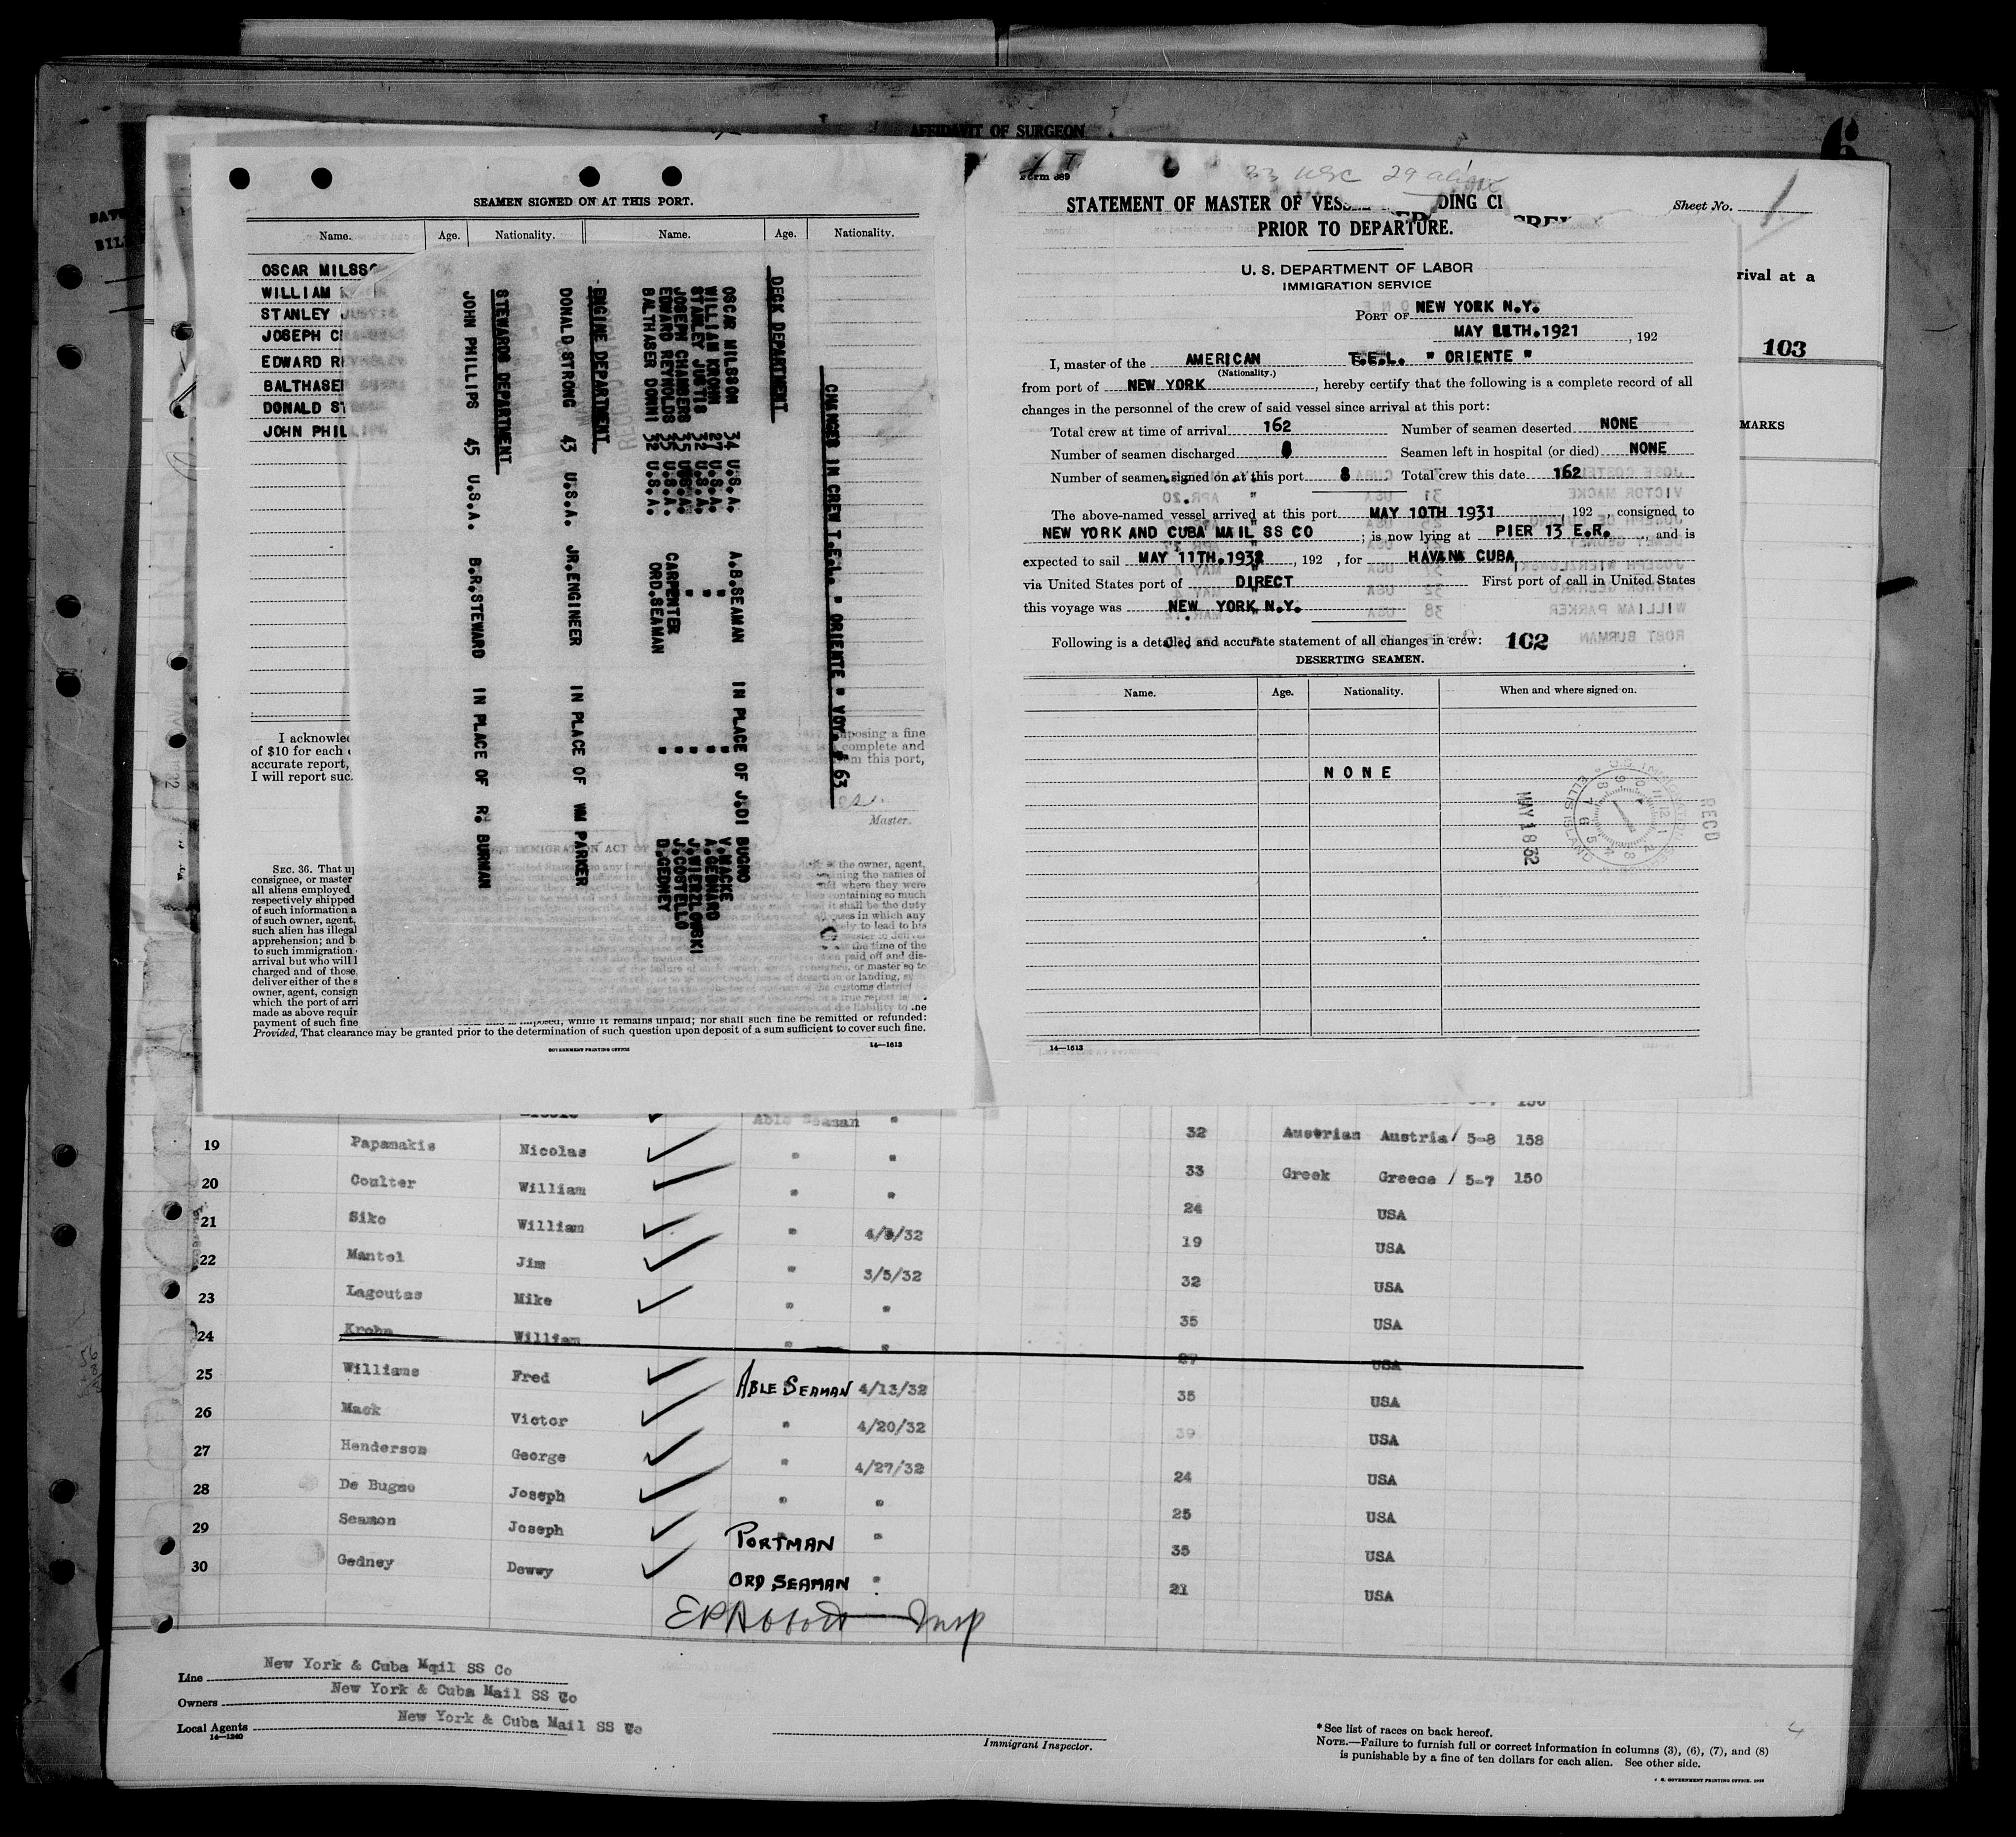 AFFIDAVIT OF SURGEON
SEAMEN SIGNED ON AT THIS PORT.
Name. Age. Nationality. Name. Age. Nationality.
OSCAR MILSSO
WILLIAM
STANLEY JUSTIS
JOSEPH CH
EDWARD REYNOLDS
BALTHASER
DONALD ST
JOHN PHIL
I acknowled
of $10 for each
accurate report,
I will report suc
mposing a fine
complete and
m this port,
Master.
IMMIGRATION ACT OF
SEC. 36. That up
consignee, or master
all aliens employed
respectively shipped
of such information a
of such owner, agent,
such alien has illegal
apprehension; and b
to such immigration
arrival but who will l
charged and of those
deliver either of the s
owner, agent, consign
which the port of arri
made as above requir
payment of such fine imposed, while it remains unpaid; nor shall such fine be remitted or refunded:
Provided, That clearance may be granted prior to the determination of such question upon deposit of a sum sufficient to cover such fine.
GOVERNMENT PRINTING OFFICE 14—1613
CHANGES IN CREW T.E.L. " ORIEATE " VOY. # 63
DECK DEPARTMENT
OSCAR MILSSON 34 U.S.A. A.B.SEAMAN IN PLACE OF J.DI BUGNO
WILLIAM KROHN 27 U.S.A. " " V.MACKE
STANLEY JUSTIS 32 U.S.A. " " A.GERHARD
JOSEPH CHAMBERS 35 U.S.A. " " J.WIERZLOWSKI
EDWARD REYNOLDS 35 U.S.A. CARPENTER " J.COSTELLO
BALTHASER DONNI 32 U.S.A. ORD.SEAMAN " D.GEDNEY
ENGINE DEPARTMENT
DONALD STRONG 43 U.S.A. JR.ENGINEER IN PLACE OF WM PARKER
STEWARDS DEPARTMENT
JOHN PHILLIPS 45 U.S.A. B.R.STEWARD IN PLACE OF R. BURMAN
Form 689
33 USC 29 alien
STATEMENT OF MASTER OF VES DING CREW
PRIOR TO DEPARTURE.
Sheet No. 1
U. S. DEPARTMENT OF LABOR
IMMIGRATION SERVICE
PORT OF NEW YORK N.Y.
MAY 11TH.1921, 192
I, master of the AMERICAN T.E.L. " ORIENTE "
(Nationality.)
from port of NEW YORK, hereby certify that the following is a complete record of all
changes in the personnel of the crew of said vessel since arrival at this port:
Total crew at time of arrival 162 Number of seamen deserted NONE
Number of seamen discharged 8 Seamen left in hospital (or died) NONE
Number of seamen signed on at this port 8 Total crew this date 162
The above-named vessel arrived at this port MAY 10TH 1931, 192 , consigned to
NEW YORK AND CUBA MAIL SS CO; is now lying at PIER 13 E.R., and is
expected to sail MAY 11TH.1932, 192 , for HAVANA CUBA,
via United States port of DIRECT First port of call in United States
this voyage was NEW YORK N.Y.
Following is a detailed and accurate statement of all changes in crew: 102
DESERTING SEAMEN.
Name. Age. Nationality. When and where signed on.
NONE
RECD
MAY 18 32
U.S. IMMIGRATION SERVICE ELLIS ISLAND
14—1613
rival at a
103
MARKS
Able Seaman "
19 Papamakis Nicolas " " 32 Austrian Austria / 5-8 158
20 Coulter William " " 33 Greek Greece / 5-7 150
21 Sike William " 4/8/32 24 USA
22 Mantel Jim " 3/5/32 19 USA
23 Lagoutas Mike " " 32 USA
24 Krohn William " " 35 USA
25 Williams Fred ABLE SEAMAN 4/13/32 27 USA
26 Mack Victor " 4/20/32 35 USA
27 Henderson George " 4/27/32 39 USA
28 De Bugno Joseph " " 24 USA
29 Seamon Joseph PORTMAN " 25 USA
30 Gedney Dewey ORD SEAMAN " 35 USA
21 USA
EP Abbott Insp
Line New York & Cuba Mail SS Co
Owners New York & Cuba Mail SS Co
Local Agents New York & Cuba Mail SS Co
14—1240
Immigrant Inspector.
*See list of races on back hereof.
NOTE.—Failure to furnish full or correct information in columns (3), (6), (7), and (8)
is punishable by a fine of ten dollars for each alien. See other side.
4